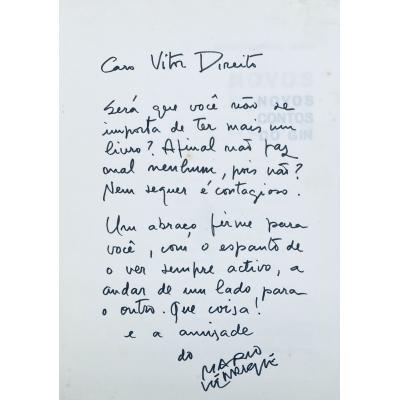 Caro Vitor Direito
Será que você não se
importa de ter mais um
livro? Afinal não faz
mal nenhum, pois não?
Nem sequer é contagioso.
Um abraço firme para
você, com o espanto de
o ver sempre activo, a
andar de um lado para
o outro. Que coisa!
e a amizade
do MARIO
HENRIQUE
NOVOS
NOVOS
CONTOS
DO GIN